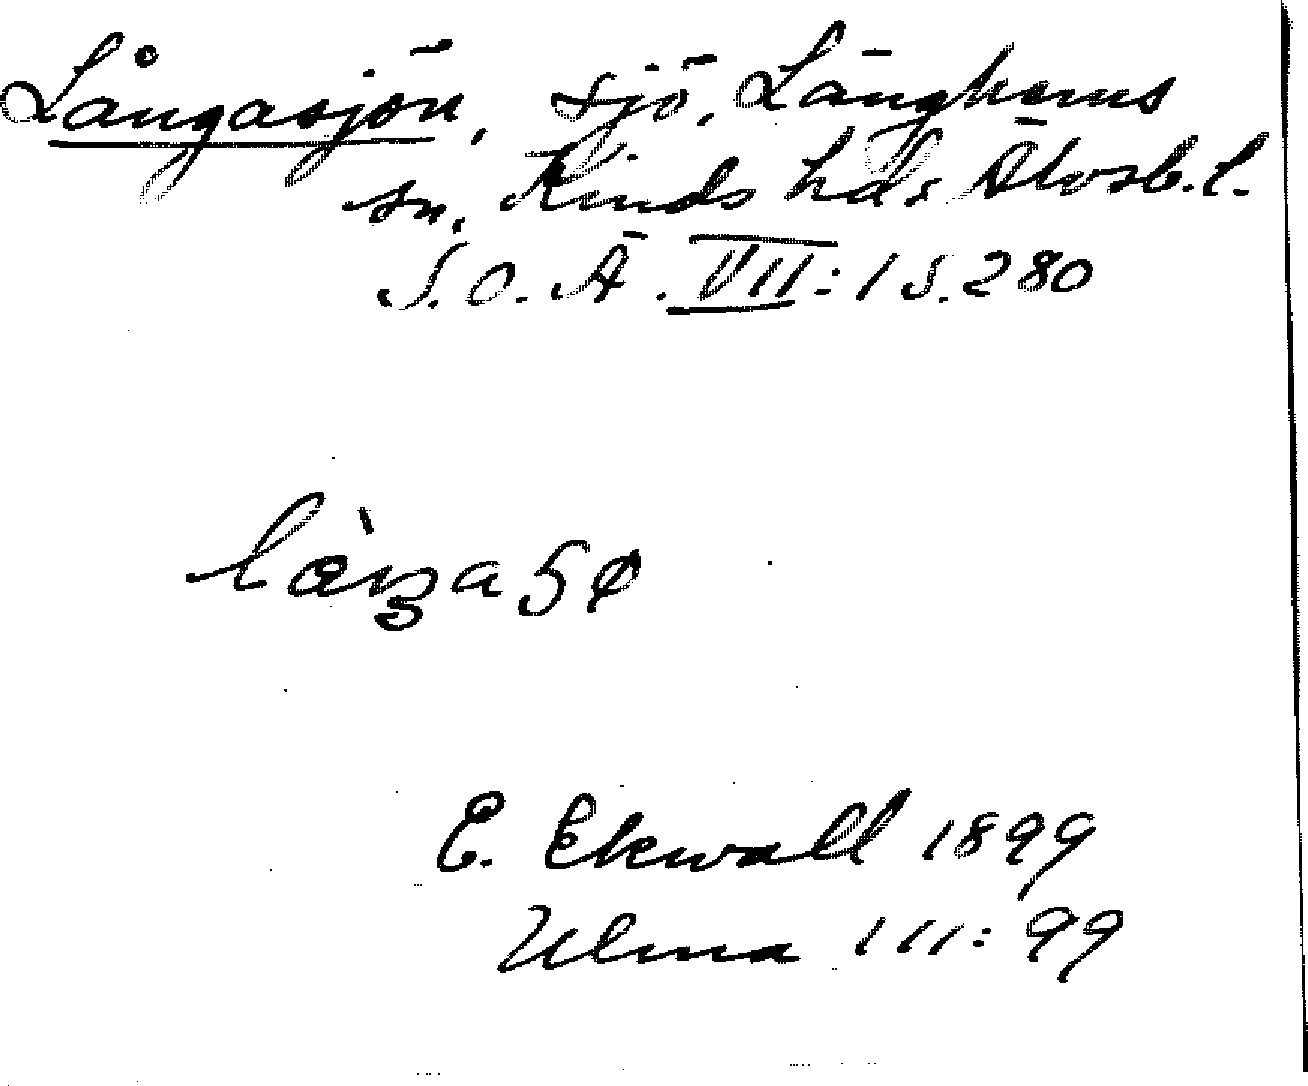 Långasjön, sjö, Länghems
sn, Kinds hd, Älvsb. l.
S. O. Ä. VII:1 S. 280
E. Ekwall 1899
Ulma 111:99